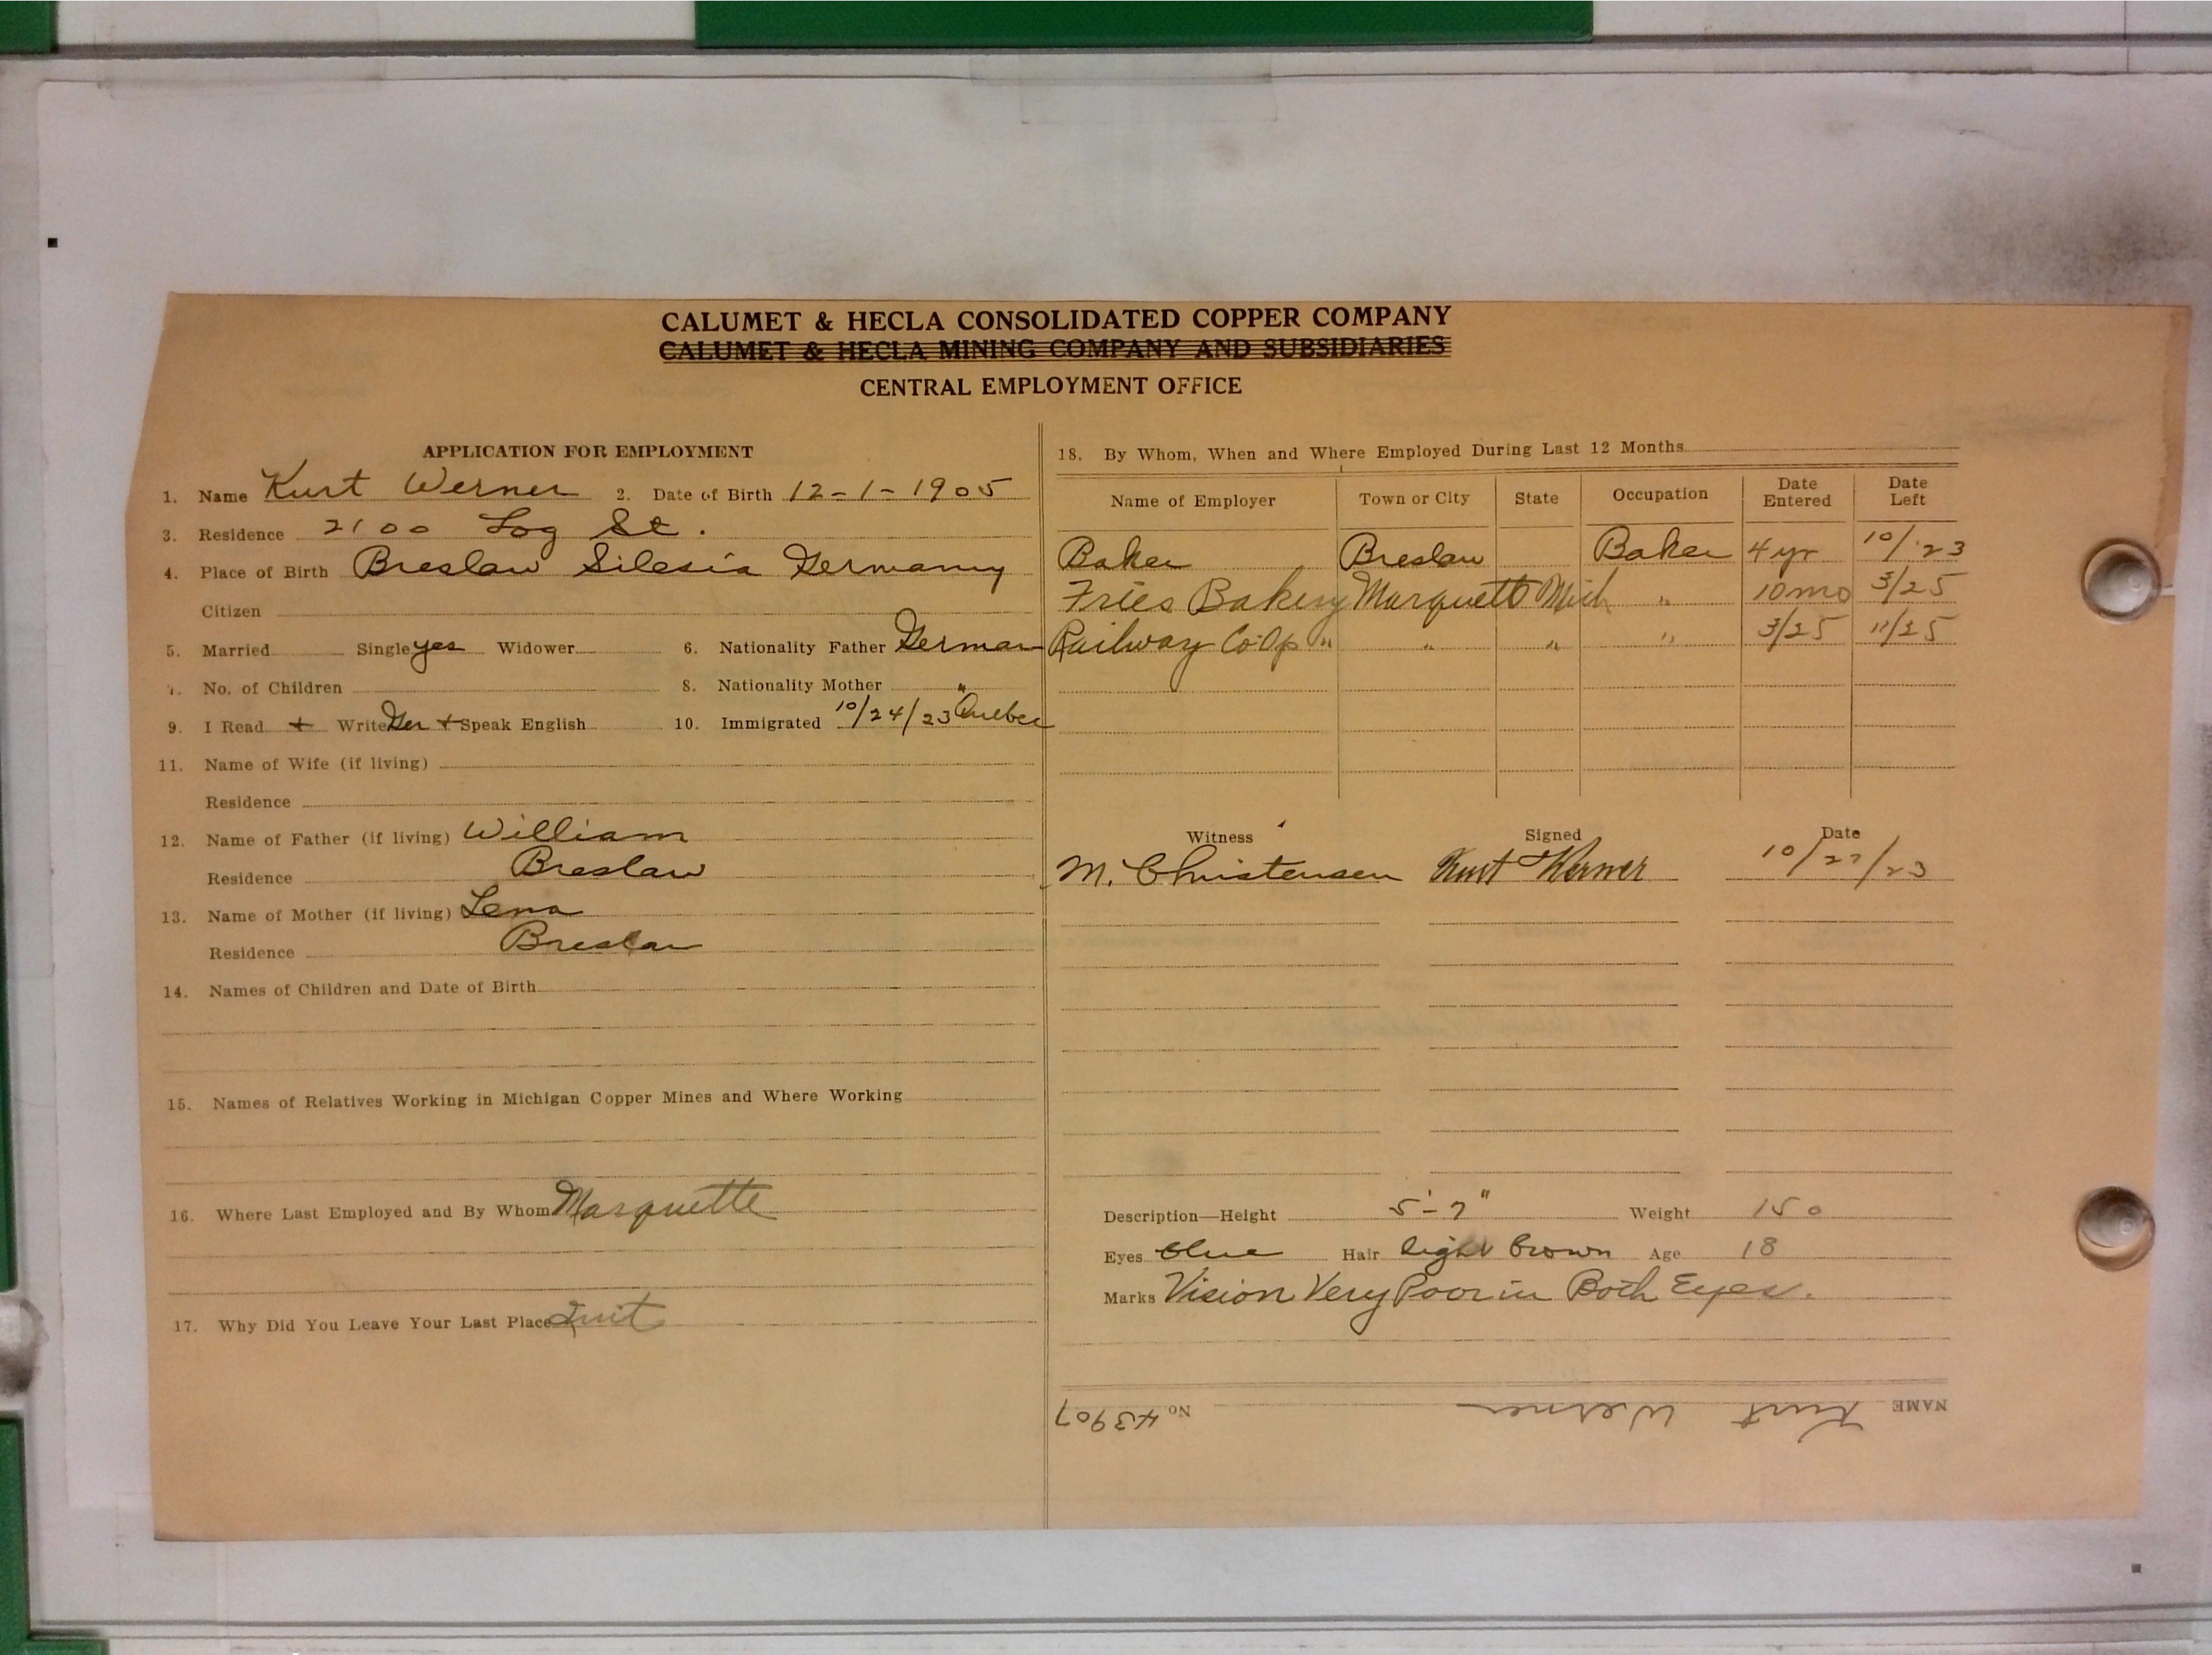 CALUMET & HECLA CONSOLIDATED COPPER COMPANY
CALUMET & HECLA MINING COMPANY AND SUBSIDIARIES
CENTRAL EMPLOYMENT OFFICE
APPLICATION FOR EMPLOYMENT
1. Name Kurt Werner 2. Date of Birth 12-1-1905
3. Residence 2100 Log St.
4. Place of Birth Breslaw Silesia Germany
Citizen
5. Married Single yes Widower 6. Nationality Father German
7. No. of Children 8. Nationality Mother "
9. I Read + Write Ger + Speak English 10. Immigrated 10/24/23 Quebec
11. Name of Wife (if living)
Residence
12. Name of Father (if living) William
Residence Breslaw
13. Name of Mother (if living) Lena
Residence Breslau
14. Names of Children and Date of Birth
15. Names of Relatives Working in Michigan Copper Mines and Where Working
16. Where Last Employed and By Whom Marquette
17. Why Did You Leave Your Last Place Quit
18. By Whom, When and Where Employed During Last 12 Months
Name of Employer Town or City State Occupation Date Entered Date Left
Baker Breslaw Baker 4 yr 10/23
Fries Bakery Marquett Mich " 10 mo 3/25
Railway Co-Op " " " " 3/25 11/25
Witness Signed Date
M. Christensen Kurt Werner 10/27/23
Description—Height 5'-7" Weight 150
Eyes blue Hair light brown Age 18
Marks Vision Very Poor in Both Eyes.
NAME Kurt Werner No 43907